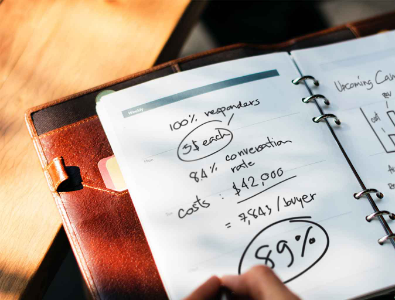 Weekly
100% responders
5$ each
84% conversation
rate
costs : $42,000
= 7,843/buyer
89%
Upcoming